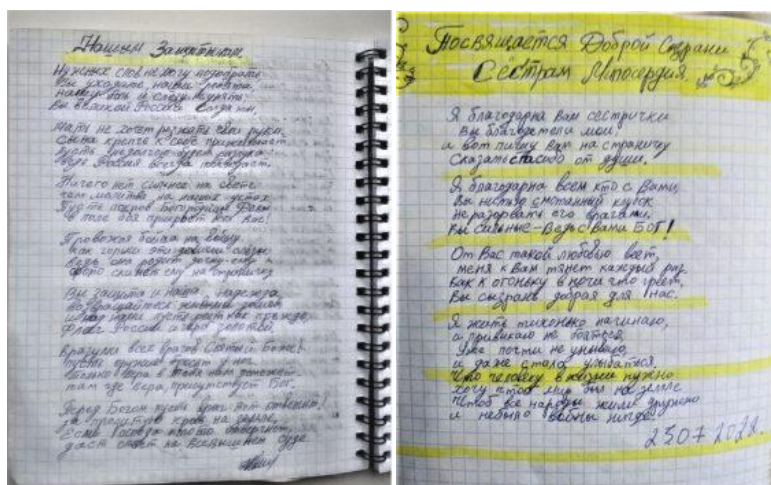 Нашим Защитникам
Нужных слов не могу подобрать
Вы уходите, наши ребята,
нам бы вас и слезу унять,
Вы великой России солдаты.
Мать не хочет разжать свои руки,
сына крепче к себе прижимает
Пусть недолгой будет разлука
Россия всегда побеждает.
Ничего нет сильнее на свете
чем молитва на наших устах
Пусть покров Богородицы Девы
в поле боя прикроет вас
Провожая бойца на войну,
как горьки эти слёзы
ведь она родит ему
фото скинет ему на страничку
Вы защита и наша надежда
возвращайтесь живыми домой
и над нами пусть реет как прежде,
Флаг России и герб золотой.
Вразуми всех врагов Святый Боже!
Пусть оружие
только вера в тебя нам поможет
там где вера, присутствует Бог.
Перед Богом пусть враг мой ответит,
за пролитую кровь на земле,
Если Господа кто-то отвергнет,
даст ответ на всевышнем суде
Посвящается Доброй Сызрани
Сёстрам Милосердия
Я благодарна вам сестрички
Вы благодетели мои,
и вот пишу вам на страничку
Сказать спасибо от души.
Я благодарна всем кто с Вами,
Вы нестяд смотанный клубок
Не разорвать его врагами,
Вы сильные - Ведь с Вами БОГ!
От Вас такой любовью веет,
меня к Вам тянет каждый раз
Как к огоньку в ночи что греет,
Вы Сызрань добрая для нас.
Я жить тихонько начинаю,
и привыкаю не бояться
Уже почти не унываю,
и даже стала улыбаться.
Что человеку в жизни нужно
хочу чтоб мир был на земле
Чтоб все народы жили дружно
и небыло войны нигде.
23.07.2022.